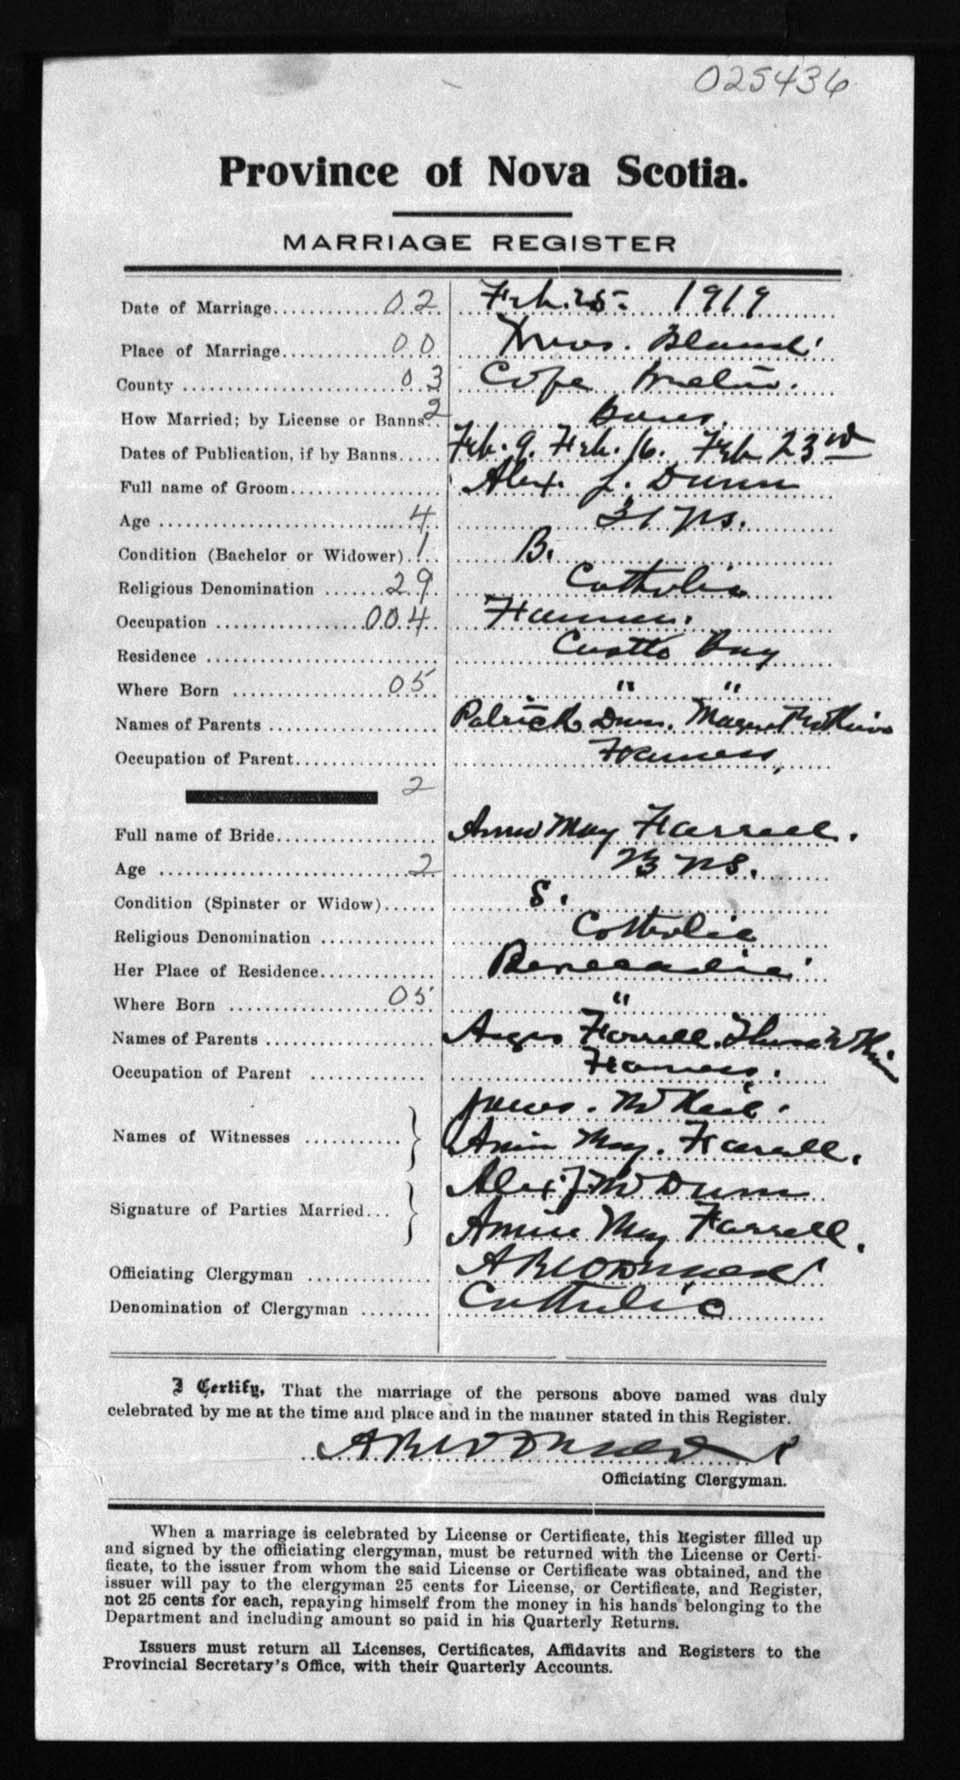 025436
Province of Nova Scotia.
MARRIAGE REGISTER
Date of Marriage 02 Feb. 25. 1919
Place of Marriage 00
County 03 Cape Breton.
How Married; by License or Banns 2 Banns.
Dates of Publication, if by Banns Feb. 9. Feb. 16. Feb 23rd
Full name of Groom Alex. J. Dunn
Age 4 31 yrs.
Condition (Bachelor or Widower) 1 B.
Religious Denomination 29 Catholic
Occupation 004 Farmer.
Residence Bay
Where Born 05 " "
Names of Parents Patrick Dunn.
Occupation of Parent Farmers,
2
Full name of Bride Annie May Farrell.
Age 2 23 yrs.
Condition (Spinster or Widow) S.
Religious Denomination Catholic
Her Place of Residence Benacadie
Where Born 05 "
Names of Parents Farrell.
Occupation of Parent Farmers.
Names of Witnesses James. McNeil.
Annie May. Farrell.
Signature of Parties Married Alex. J. Mc Dunn
Annie May Farrell.
Officiating Clergyman
Denomination of Clergyman Catholic
I Certify, That the marriage of the persons above named was duly
celebrated by me at the time and place and in the manner stated in this Register.
Officiating Clergyman.
When a marriage is celebrated by License or Certificate, this Register filled up
and signed by the officiating clergyman, must be returned with the License or Certi-
ficate, to the issuer from whom the said License or Certificate was obtained, and the
issuer will pay to the clergyman 25 cents for License, or Certificate, and Register,
not 25 cents for each, repaying himself from the money in his hands belonging to the
Department and including amount so paid in his Quarterly Returns.
Issuers must return all Licenses, Certificates, Affidavits and Registers to the
Provincial Secretary's Office, with their Quarterly Accounts.